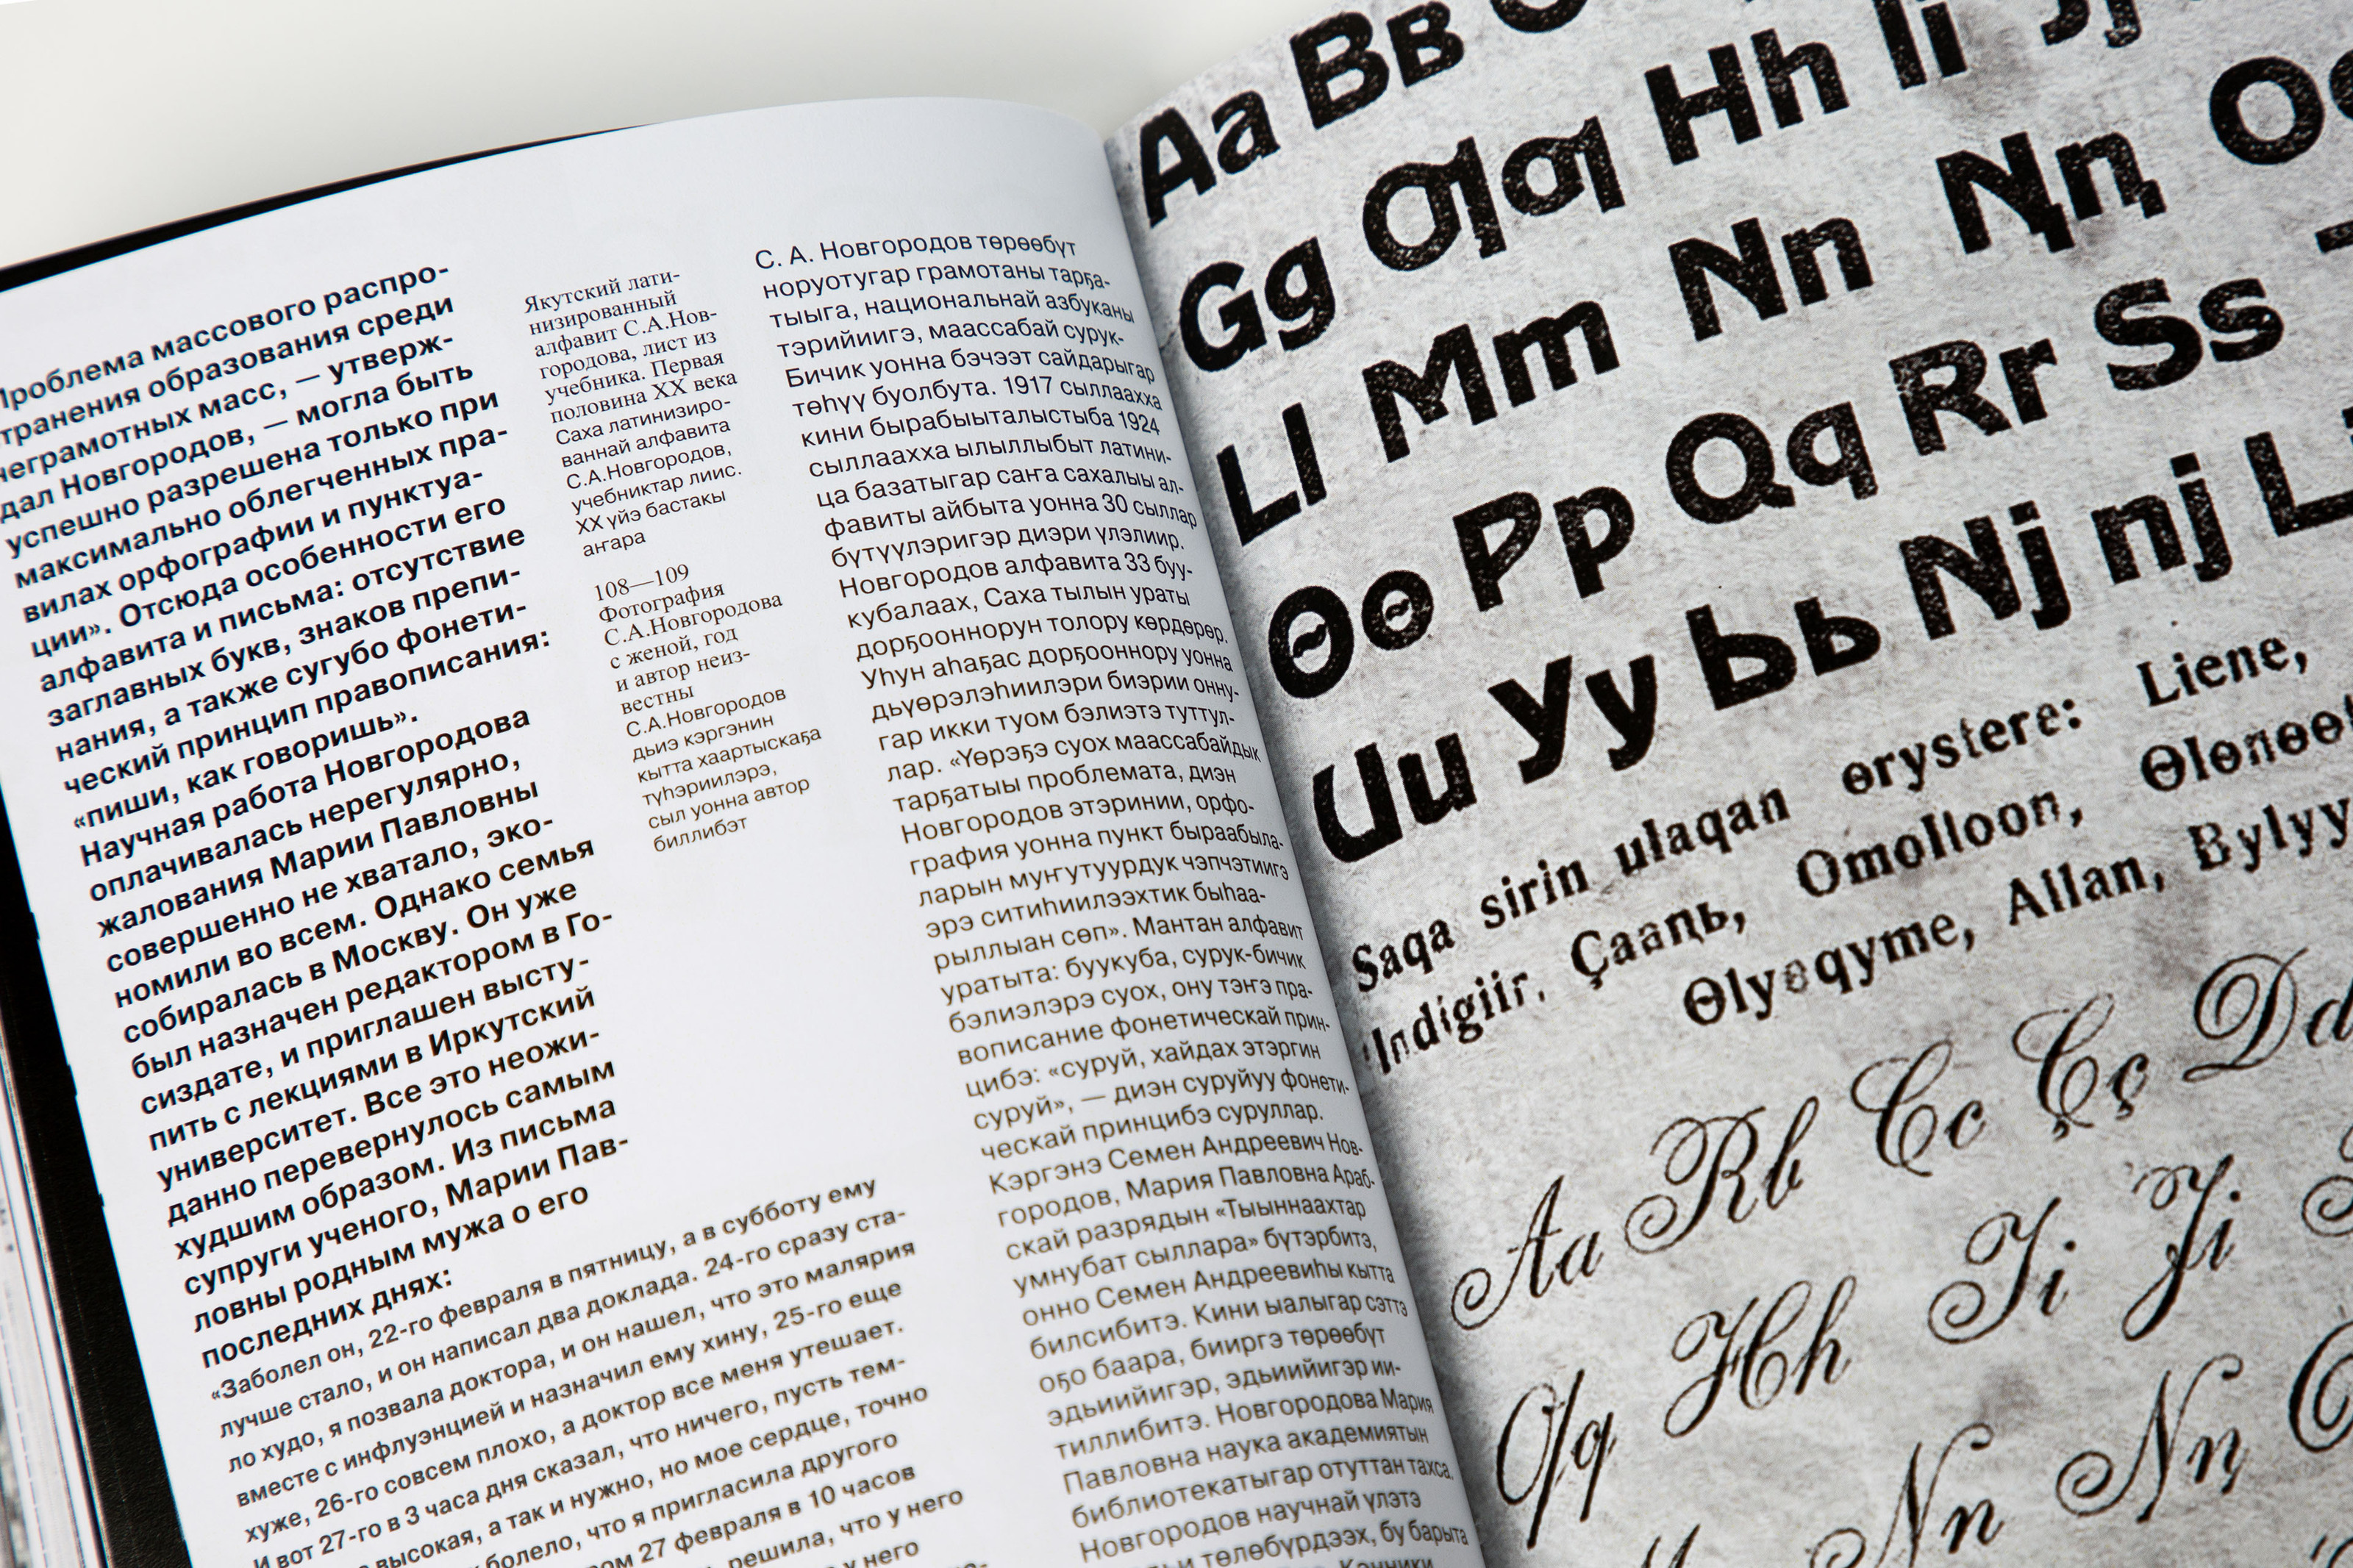 Проблема массового распро-
транения образования среди
неграмотных масс, — утверж-
дал Новгородов, — могла быть
успешно разрешена только при
максимально облегченных пра-
вилах орфографии и пунктуа-
ции». Отсюда особенности его
алфавита и письма: отсутствие
заглавных букв, знаков препи-
нания, а также сугубо фонети-
ческий принцип правописания:
«пиши, как говоришь».
Научная работа Новгородова
оплачивалась нерегулярно,
жалования Марии Павловны
совершенно не хватало, эко-
номили во всем. Однако семья
собиралась в Москву. Он уже
был назначен редактором в Го-
сиздате, и приглашен высту-
пить с лекциями в Иркутский
университет. Все это неожи-
данно перевернулось самым
худшим образом. Из письма
супруги ученого, Марии Пав-
ловны родным мужа о его
последних днях:
«Заболел он, 22-го февраля в пятницу, а в субботу ему
лучше стало, и он написал два доклада. 24-го сразу ста-
ло худо, я позвала доктора, и он нашел, что это малярия
вместе с инфлуэнцией и назначил ему хину, 25-го еще
хуже, 26-го совсем плохо, а доктор все меня утешает.
И вот 27-го в 3 часа дня сказал, что ничего, пусть тем-
высокая, а так и нужно, но мое сердце, точно
болело, что я пригласила другого
27 февраля в 10 часов
решила, что у него
у него
Якутский лати-
низированный
алфавит С.А.Нов-
городова, лист из
учебника. Первая
половина XX века
Саха латинизиро-
ваннай алфавита
С.А.Новгородов,
учебниктар лиис.
XX үйэ бастакы
аҥара
108—109
Фотография
С.А.Новгородова
с женой, год
и автор неиз-
вестны
С.А.Новгородов
дьиэ кэргэнин
кытта хаартыскаҕа
түһэриилэрэ,
сыл уонна автор
биллибэт
С. А. Новгородов төрөөбүт
норуотугар грамотаны тарҕа-
тыыга, национальнай азбуканы
тэрийиигэ, маассабай сурук-
Бичик уонна бэчээт сайдарыгар
төһүү буолбута. 1917 сыллаахха
кини бырабыыталыстыба 1924
сыллаахха ылыллыбыт латини-
ца базатыгар саҥа сахалыы ал-
фавиты айбыта уонна 30 сыллар
бүтүүлэригэр диэри үлэлиир.
Новгородов алфавита 33 буу-
кубалаах, Саха тылын ураты
дорҕооннорун толору көрдөрөр.
Уһун аһаҕас дорҕооннору уонна
дьүөрэлэһиилэри биэрии онну-
гар икки туом бэлиэтэ туттул-
лар. «Үөрэҕэ суох маассабайдык
тарҕатыы проблемата, диэн
Новгородов этэринии, орфо-
графия уонна пункт быраабыла-
ларын муҥутуурдук чэпчэтиигэ
эрэ ситиһиилээхтик быһаа-
рыллыан сөп». Мантан алфавит
уратыта: буукуба, сурук-бичик
бэлиэлэрэ суох, ону тэҥэ пра-
вописание фонетическай прин-
цибэ: «суруй, хайдах этэргин
суруй», — диэн суруйуу фонети-
ческай принцибэ суруллар.
Кэргэнэ Семен Андреевич Нов-
городов, Мария Павловна Араб-
скай разрядын «Тыыннаахтар
умнубат сыллара» бүтэрбитэ,
онно Семен Андреевиһы кытта
билсибитэ. Кини ыалыгар сэттэ
оҕо баара, бииргэ төрөөбүт
эдьиийигэр, эдьиийигэр ии-
тиллибитэ. Новгородова Мария
Павловна наука академиятын
библиотекатыгар отуттан тахса.
Новгородов научнай үлэтэ
төлөбүрдээх, бу барыта
Aa Bв
Gg Ƣƣ Hh Ii
Ll Mm Nn Ꞑꞑ
Ɵɵ Pp Qq Rr Ss
Uu Yy Ьь Nj nj
Saqa sirin ulaqan ɵrystere: Liene,
Indigiir, Çaaꞑь, Omolloon,
Ɵlyɵqyme, Allan,
Aa Bb Cc Çç Dd
Ƣƣ Hh Ii Jj
Nn Ꞑꞑ